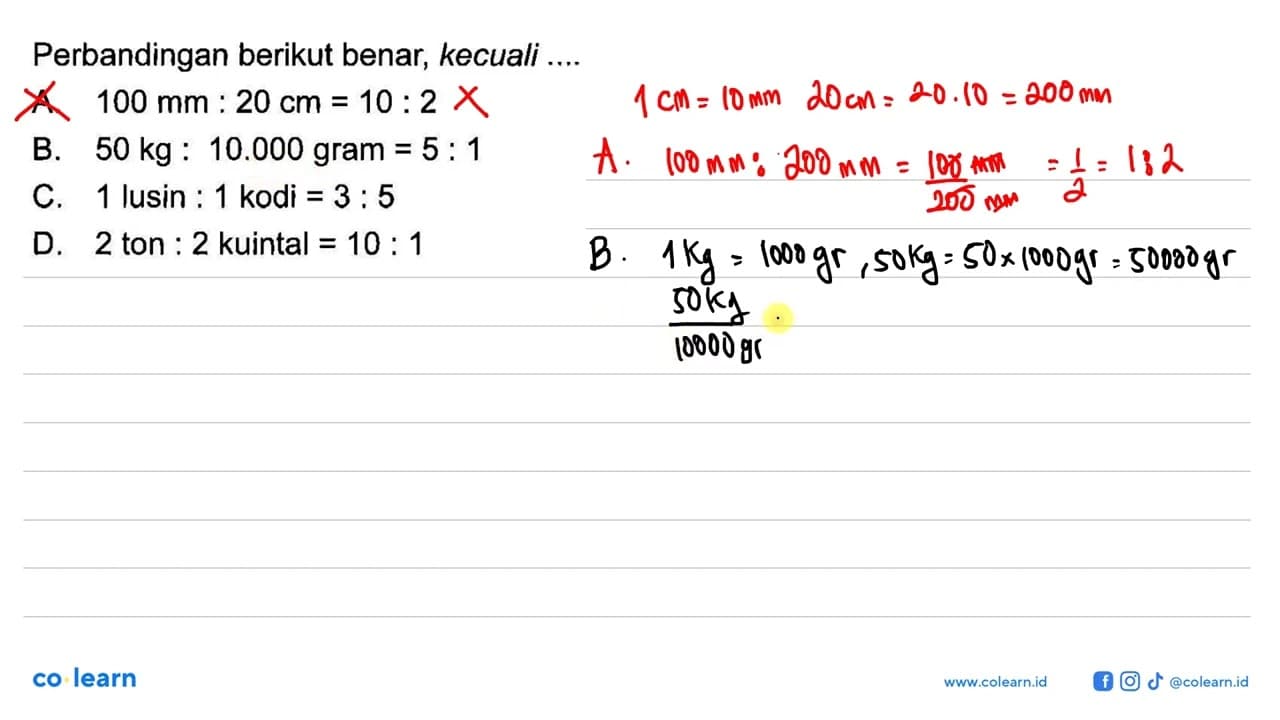 Perbandingan berikut benar, kecuali ....
A. 100 mm : 20 cm = 10 : 2 X
B. 50 kg : 10.000 gram = 5 : 1
C. 1 lusin : 1 kodi = 3 : 5
D. 2 ton : 2 kuintal = 10 : 1
1 cm = 10 mm 20 cm = 20.10 = 200 mm
A. 100 mm : 200 mm = 100 mm / 200 mm = 1/2 = 1:2
B. 1 Kg = 1000 gr, 50 Kg = 50 x 1000 gr = 50000 gr
50 Kg
10000 gr
co learn
www.colearn.id @colearn.id